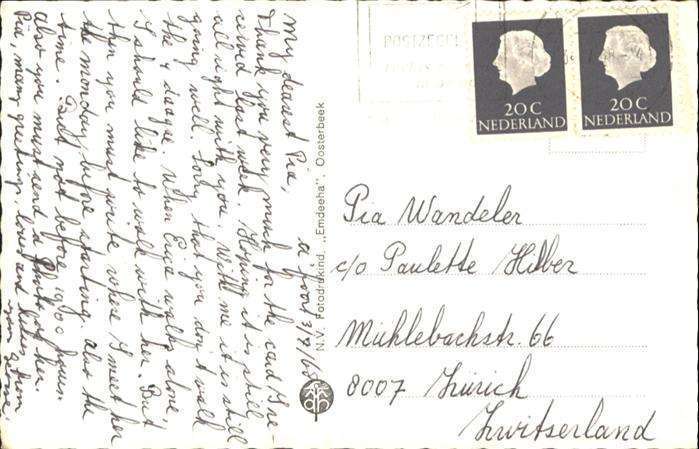 a'foort 3/7/65
My dearest Pia,
Thank you very much for the card I re-
ceived last week. Hoping it is still
all right with you. With me it is still
going well. Sorry that you don't walk
the 4 daagse. When Enga walks alone
I should like to walk with her. But
then you must write where I meet her
the monday before starting. also the
time. But not before 19.00 hours.
Also you must send a photo of her.
Pia, many greetings, love and kisses from
N.V. Fotodrukind. „Emdeeha", Oosterbeek
POSTZEGEL
20 C
NEDERLAND
20 C
NEDERLAND
Pia Wandeler
c/o Paulette Hilber
Mühlebachstr. 66
8007 Zürich
Zwitserland